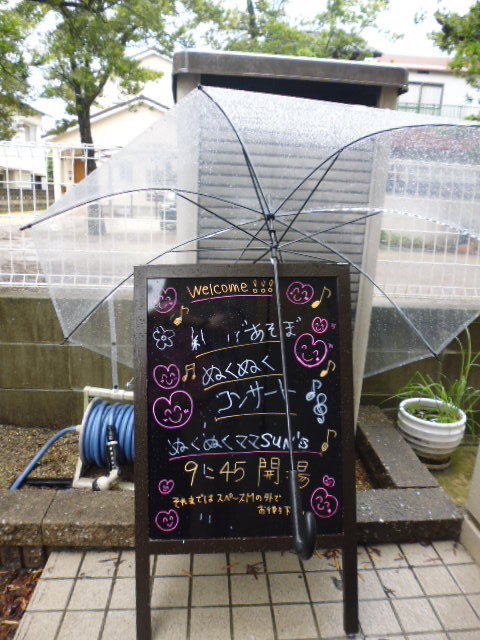 Welcome!!!
あそぼ
ぬくぬく
コンサート
ぬくぬくママSUN's
9に45 開場
それまでは スペースMの外で
お待ち下